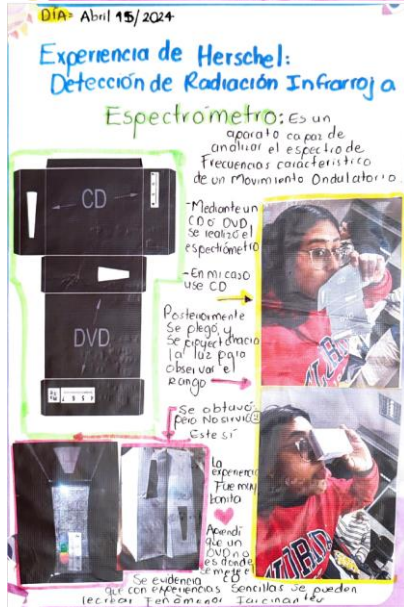 DÍA: Abril 15/2024
Experiencia de Herschel:
Detección de Radiación Infrarroja
Espectrómetro: Es un
aparato capaz de
analizar el espectro de
Frecuencias característico
de un Movimiento Ondulatorio.
CD
DVD
-Mediante un
CD o DVD
se realizó el
espectrómetro
-En mi caso
use CD
Posteriormente
se plegó, y
se proyectó hacia
la luz para
observar el
Rango
Se obtuvo
pero No sirvió
Este sí
La
experiencia
Fue muy
bonita
Aprendí
que un
DVD no
es donde
se mete el
CD
Se evidencia
que con experiencias Sencillas se pueden
Fenómenos